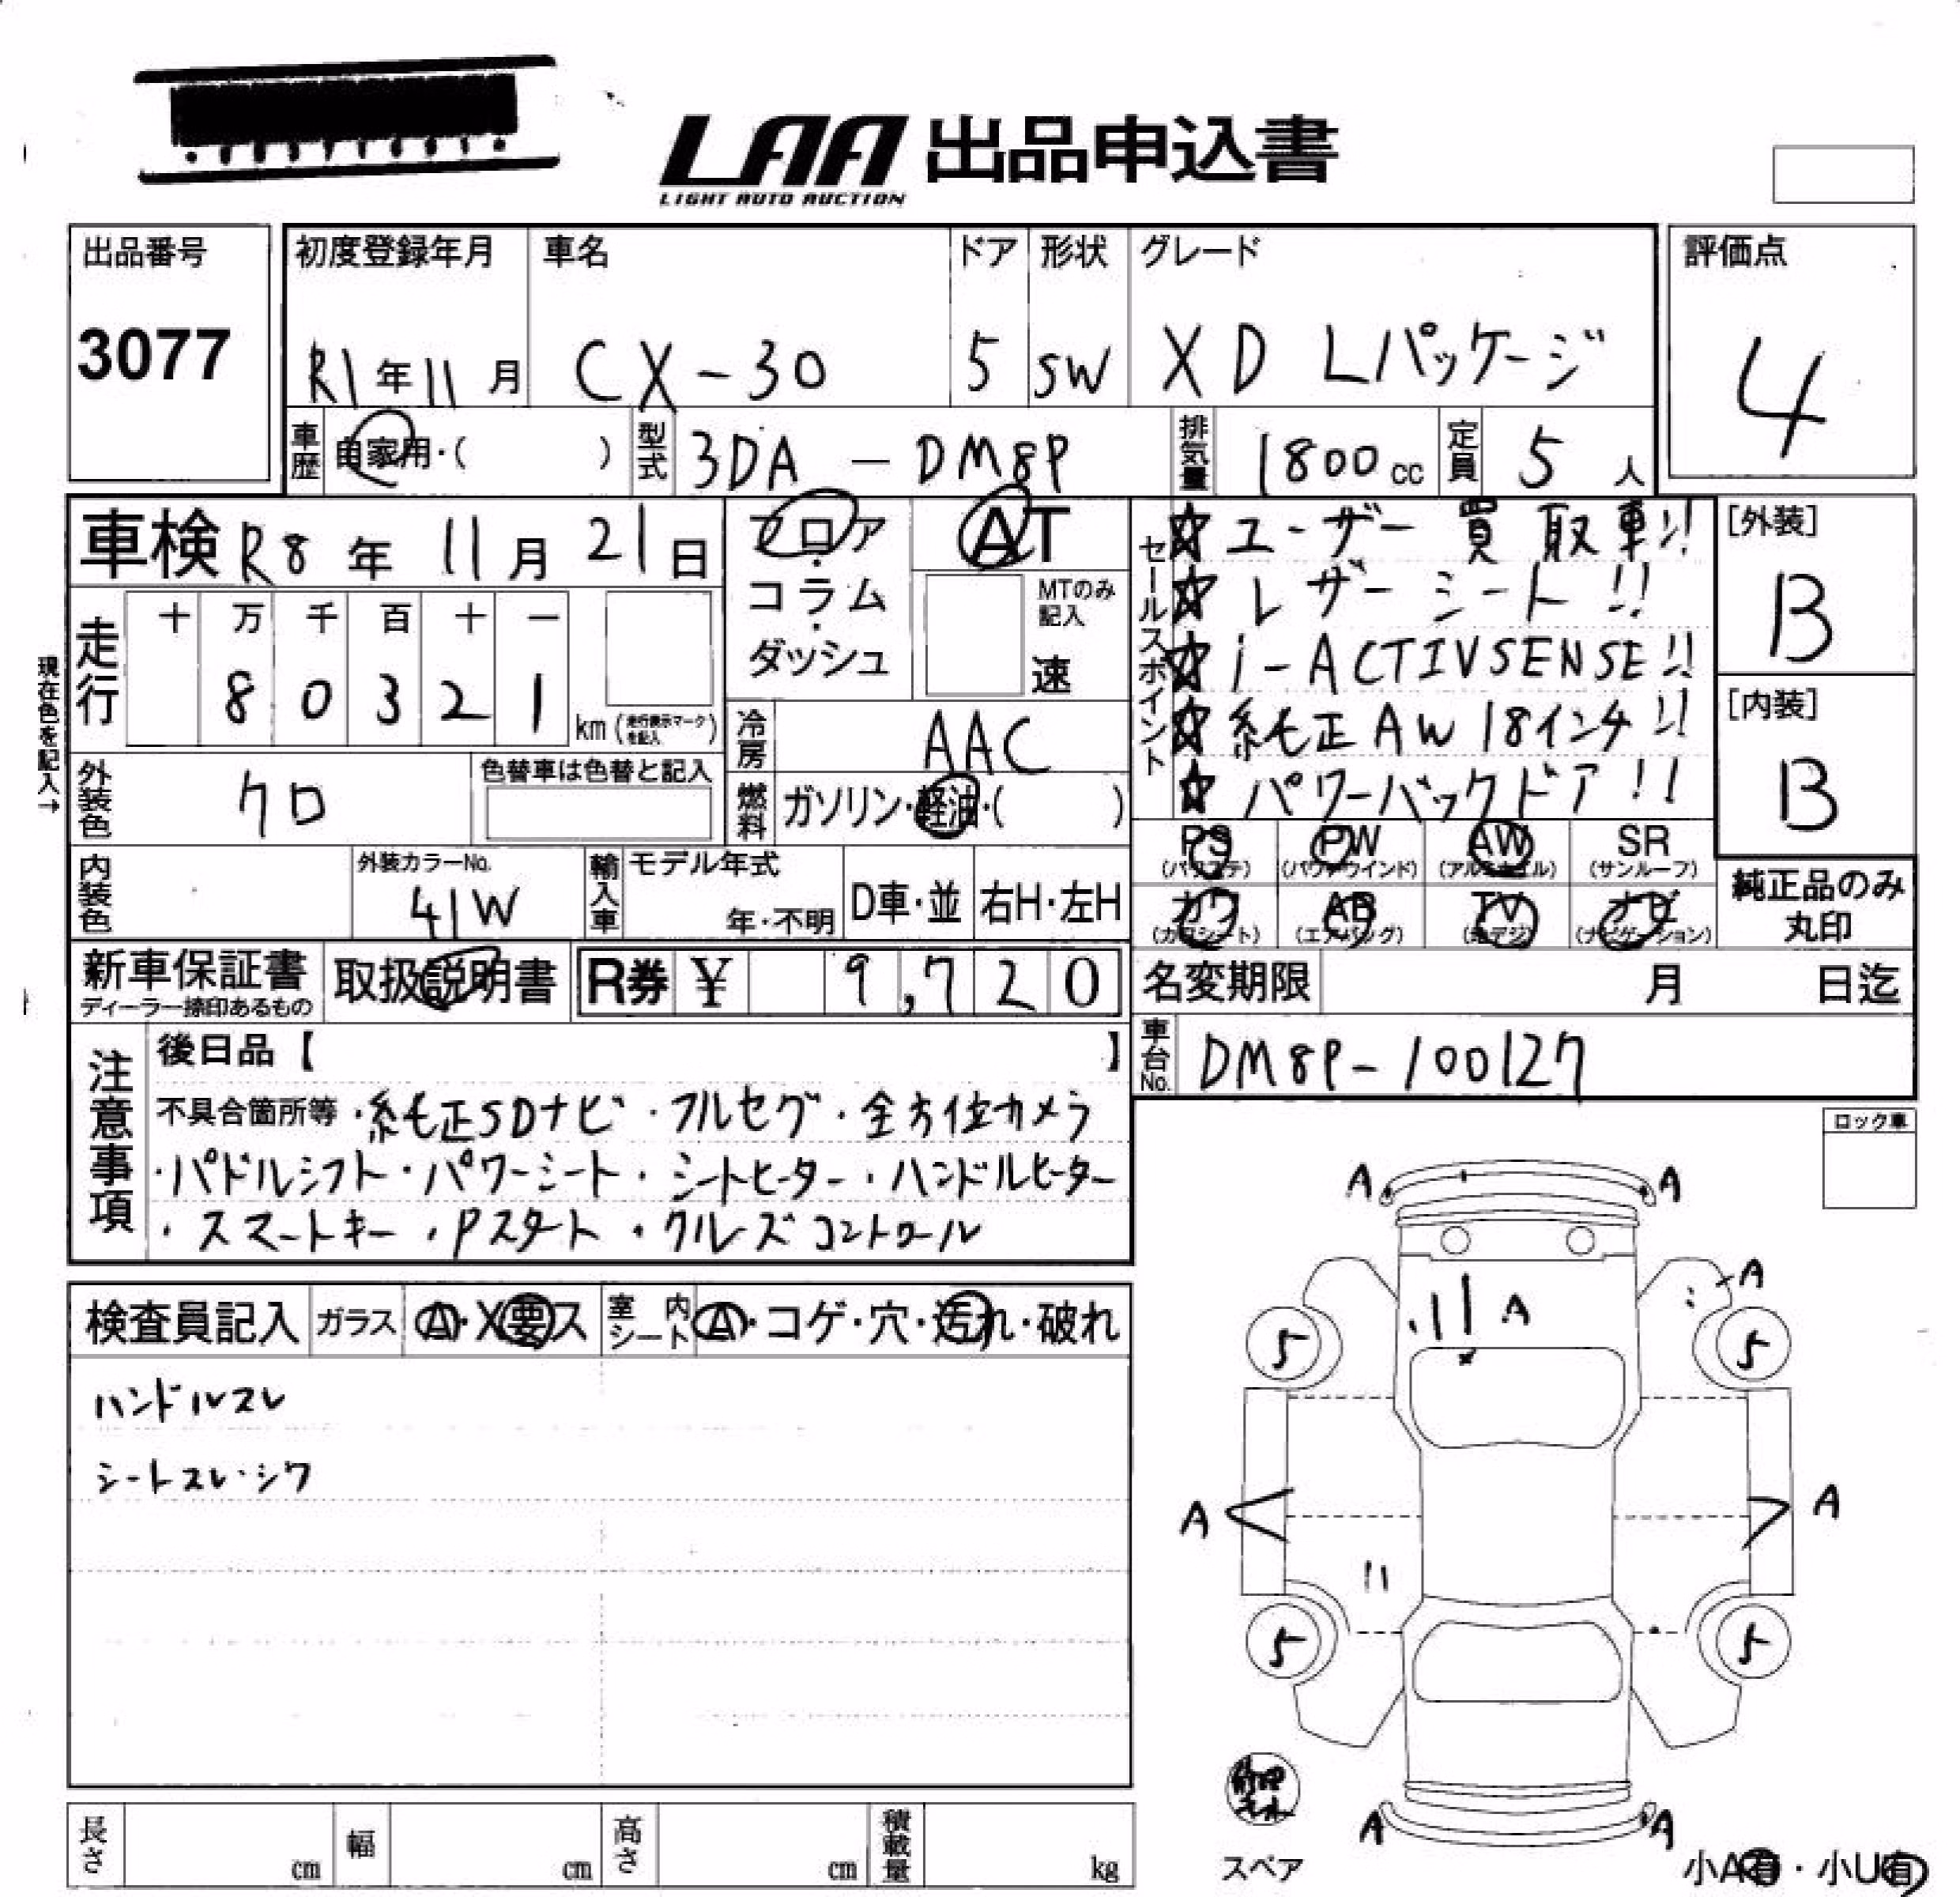 LAA 出品申込書
LIGHT AUTO AUCTION
出品番号
3077
初度登録年月 車名 ドア 形状 グレード
R1年11月 CX-30 5 SW XD Lパッケージ
評価点
4
車歴 自家用・( ) 型式 3DA - DM8P 排気量 1800cc 定員 5人
車検 R8年 11月 21日
フロア・コラム・ダッシュ
AT
MTのみ記入
速
セールスポイント
☆ユーザー買取車!!
☆レザーシート!!
☆i-ACTIVSENSE!!
☆純正AW18インチ!!
☆パワーバックドア!!
[外装]
B
[内装]
B
現在色を記入→
走行 十 万 千 百 十 一
8 0 3 2 1 km (走行表示マークを記入)
冷房 AAC
外装色 クロ 色替車は色替と記入
燃料 ガソリン・軽油・( )
PS (パワステ) PW (パワーウインド) AW (アルミホイル) SR (サンルーフ)
カワ (カワシート) AB (エアバッグ) TV (地デジ) ナビ (ナビゲーション)
純正品のみ丸印
内装色 外装カラーNo. 41W 輸入車 モデル年式 年・不明 D車・並 右H・左H
新車保証書 ディーラー捺印あるもの 取扱説明書 R券 ¥ 9,720
名変期限 月 日迄
車台No. DM8P-100127
注意事項
後日品【 】
不具合箇所等・純正SDナビ・フルセグ・全方位カメラ
・パドルシフト・パワーシート・シートヒーター・ハンドルヒーター
・スマートキー・Pスタート・クルーズコントロール
ロック車
検査員記入 ガラス A・X要ス 室内シート A・コゲ・穴・汚れ・破れ
ハンドルスレ
シートスレ・シワ
A A
A
A
5 5
A A
5 5
A A
スペア
小A有・小U有
長さ cm 幅 cm 高さ cm 積載量 kg